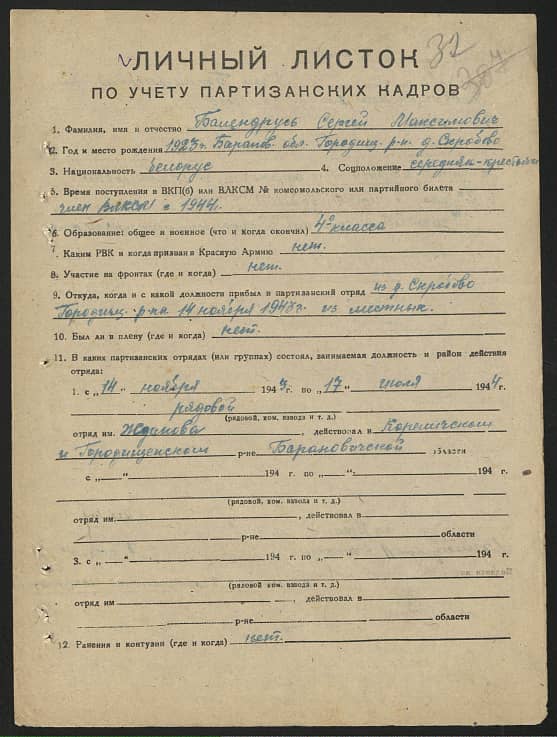 ЛИЧНЫЙ ЛИСТОК 32
ПО УЧЕТУ ПАРТИЗАНСКИХ КАДРОВ
1. Фамилия, имя и отчество Балендрусь Сергей Максимович
2. Год и место рождения 1923 г. Баранов. обл. Городищ. р-н. д. Скробово
3. Национальность белорус 4. Соцположение середняк-крестьянин
5. Время поступления в ВКП(б) или ВЛКСМ № комсомольского или партийного билета
член ВЛКСМ с 1944
6. Образование: общее и военное (что и когда окончил) 4 класса
7. Каким РВК и когда призван в Красную Армию нет.
8. Участие на фронтах (где и когда) нет.
9. Откуда, когда и с какой должности прибыл в партизанский отряд из д. Скробово
Городищ. р-на 14 ноября 1943 г. из местных.
10. Был ли в плену (где и когда) нет.
11. В каких партизанских отрядах (или группах) состоял, занимаемая должность и район действия
отряда:
1. с „14“ ноября 1943 г. по „17“ июля 1944 г.
рядовой
(рядовой, ком. взвода и т. д.)
отряд им. Жданова, действовал в Кореличском
и Городищенском р-не Барановичской области
с „ “ 194 г. по „ “ 194 г.
(рядовой, ком. взвода и т. д.)
отряд им. , действовал в
р-не области
3. с „ “ 194 г. по „ “ 194 г.
(рядовой, ком. взвода и т. д.)
отряд им , действовал в
р-не области
12. Ранения и контузии (где и когда) нет.